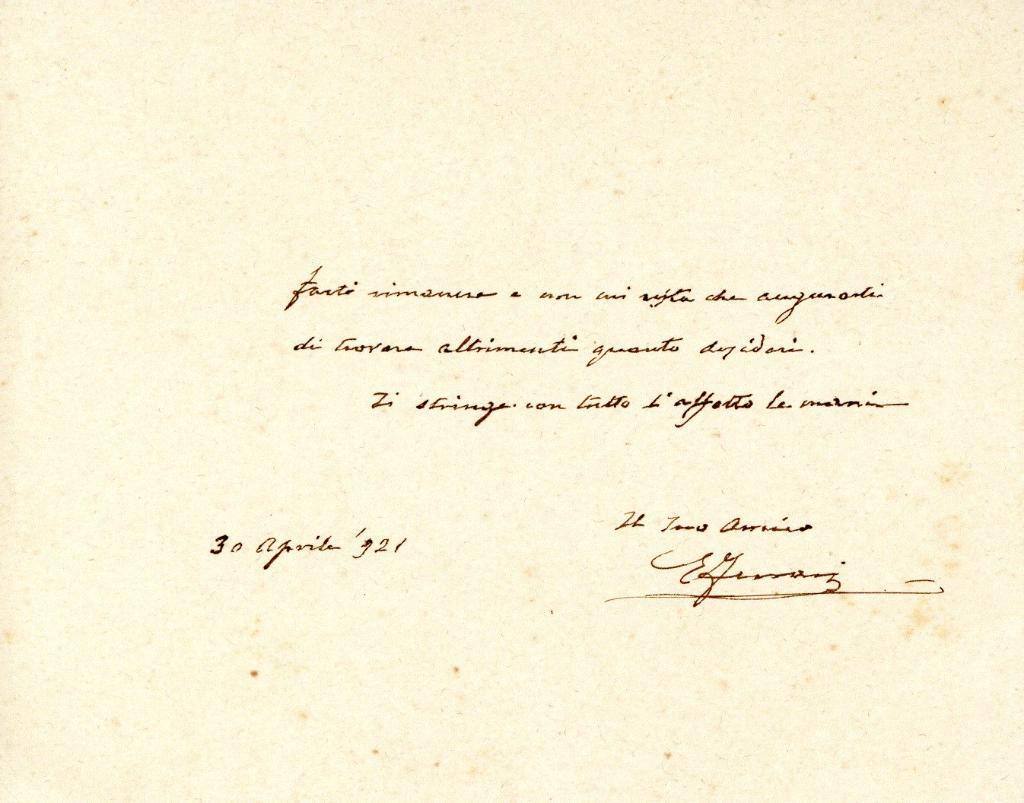 farti rimanere e non mi resta che augurarti
di trovare altrimenti quanto desideri.
Ti stringe con tutto l'affetto le mani
Il Tuo Amico
30 Aprile '921
EFerrari